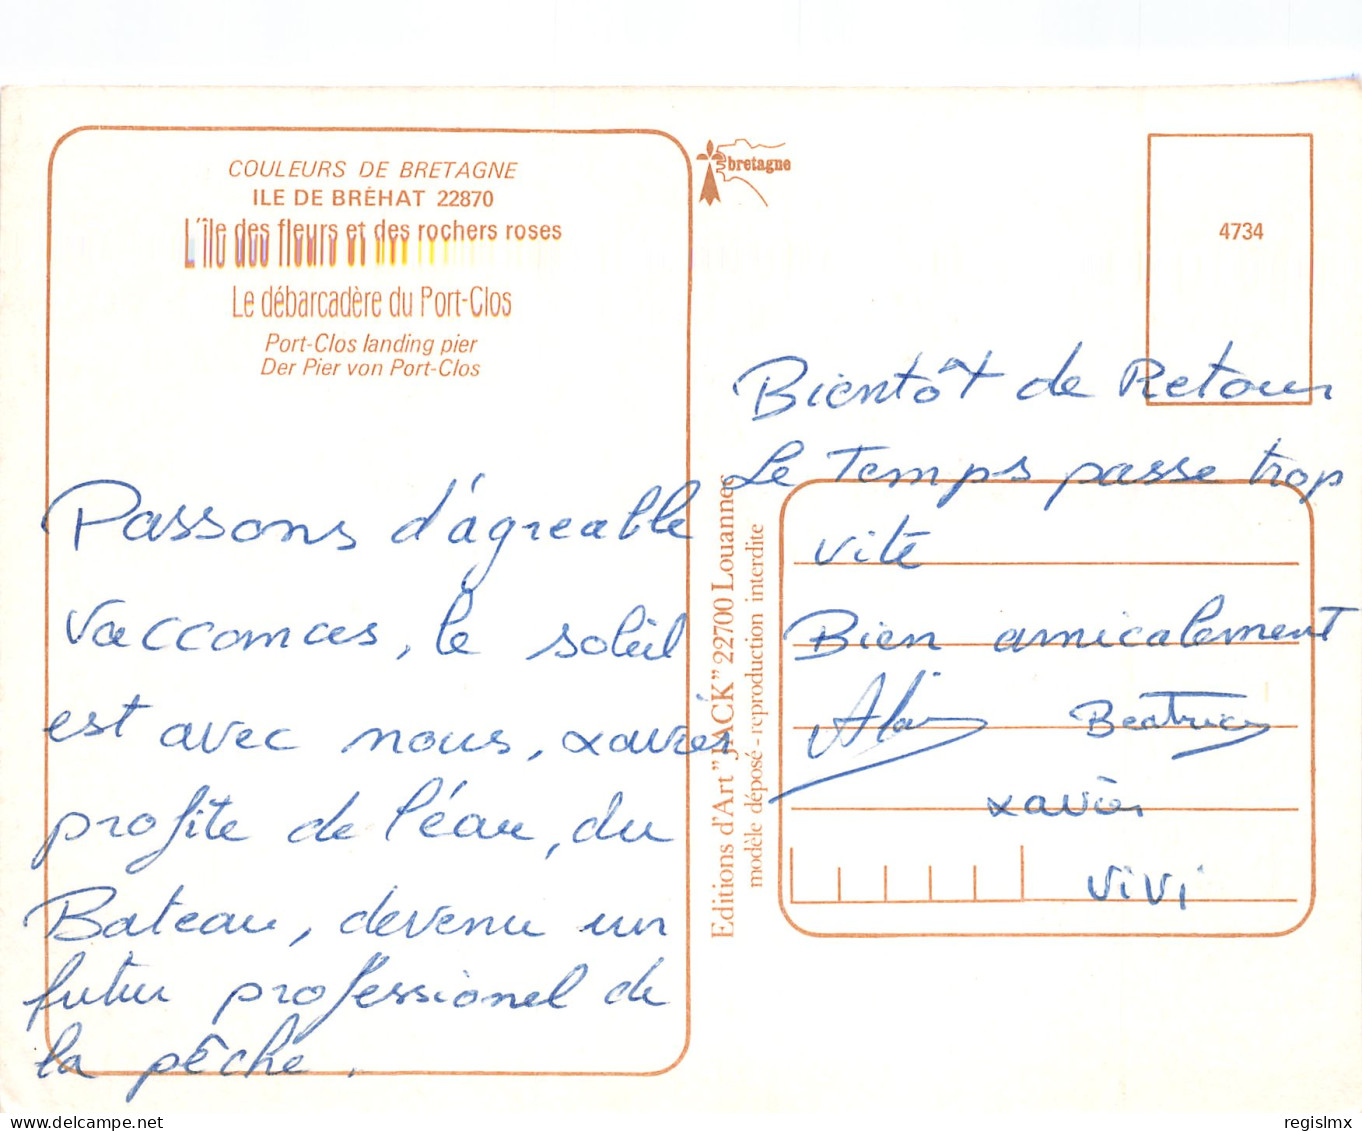 COULEURS DE BRETAGNE
ILE DE BRÉHAT 22870
L'île des fleurs et des rochers roses
Le débarcadère du Port-Clos
Port-Clos landing pier
Der Pier von Port-Clos
Passons d'agreable
vaccances, le soleil
est avec nous, xavier
profite de l'éau, du
Bateau, devenu un
futur professionel de
la pêche.
bretagne
4734
Editions d'Art "JACK" 22700 Louannec
modèle déposé - reproduction interdite
Bientôt de Retour
Le Temps passe trop
vite
Bien amicalement
Alain Beatrice
xavier
vivi
regislmx